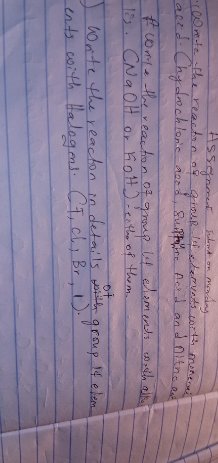 ssignment Submit on monday
Write the reaction of group 14 elements with mineral
acid. (hydrochloric acid, Sulphuric Acid and Nitric ac
# Write the reaction of group 14 elements with alk
lis. (NaOH or KOH) either of them
) Write the reaction in details of group 14 elem
ents with Halogens. (F, Cl, Br, I).